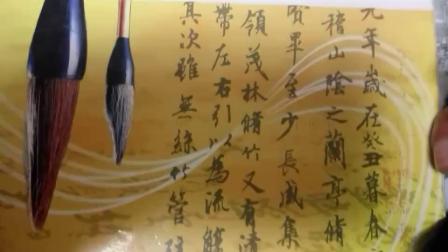 元年歲在癸丑暮春
稽山陰之蘭亭脩
賢畢至少長咸集
領茂林脩竹又有清
帶左右引以為流觴
其次雖無絲竹管弦